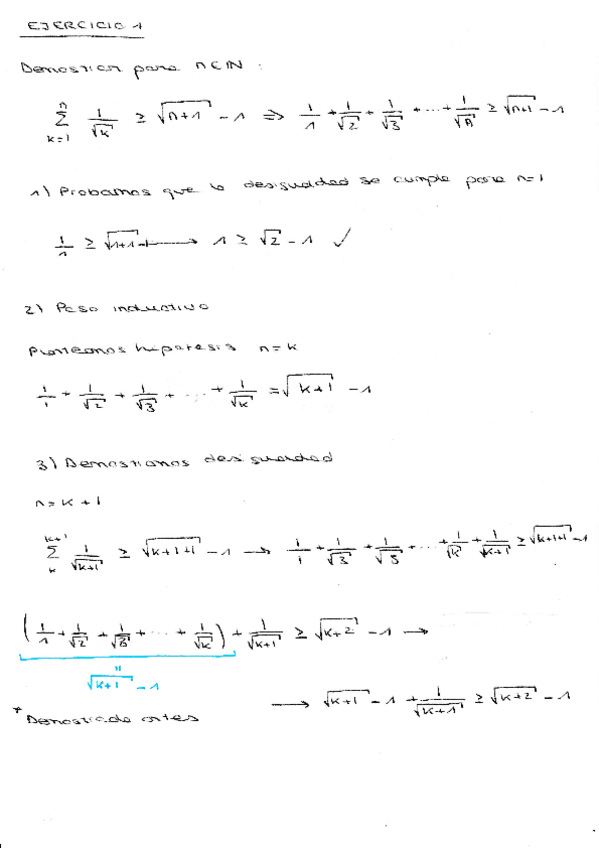 EJERCICIO 1
Demostrar para n ∈ ℕ :
n∑k=1 1/√k ≥ √(n+1) - 1 ⇒ 1/1 + 1/√2 + 1/√3 + ... + 1/√n ≥ √(n+1) - 1
1) Probamos que la desigualdad se cumple para n=1
1/1 ≥ √(1+1) - 1 ⟶ 1 ≥ √2 - 1 ✓
2) Paso inductivo
Planteamos hipótesis n=k
1/1 + 1/√2 + 1/√3 + ... + 1/√k = √(k+1) - 1
3) Demostramos desigualdad
n=k+1
k+1∑k 1/√(k+1) ≥ √(k+1+1) - 1 ⟶ 1/1 + 1/√3 + 1/√3 + ... + 1/√k + 1/√(k+1) ≥ √(k+1+1) - 1
(1/1 + 1/√2 + 1/√3 + ... + 1/√k) + 1/√(k+1) ≥ √(k+2) - 1 ⟶
"
√(k+1) - 1
⟶ √(k+1) - 1 + 1/√(k+1) ≥ √(k+2) - 1
* Demostrado antes